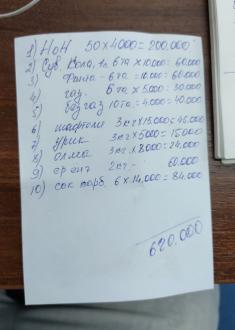 1) Нон 50x4000=200.000
2) Сув. Кола, 1л 6та x10000=60.000
3) Фанта - 6та = 10.000=60.000
4) газ. 6та x5.000=30.000
5) безгаз 10та=4.000=40.000
6) шафтоли 3кг x15.000=45.000
7) урик 3кг x5000=15000
8) олма 3кг x8.000=24.000
9) 2кг - 60.000
10) сок 6x14.000=84.000
620.000